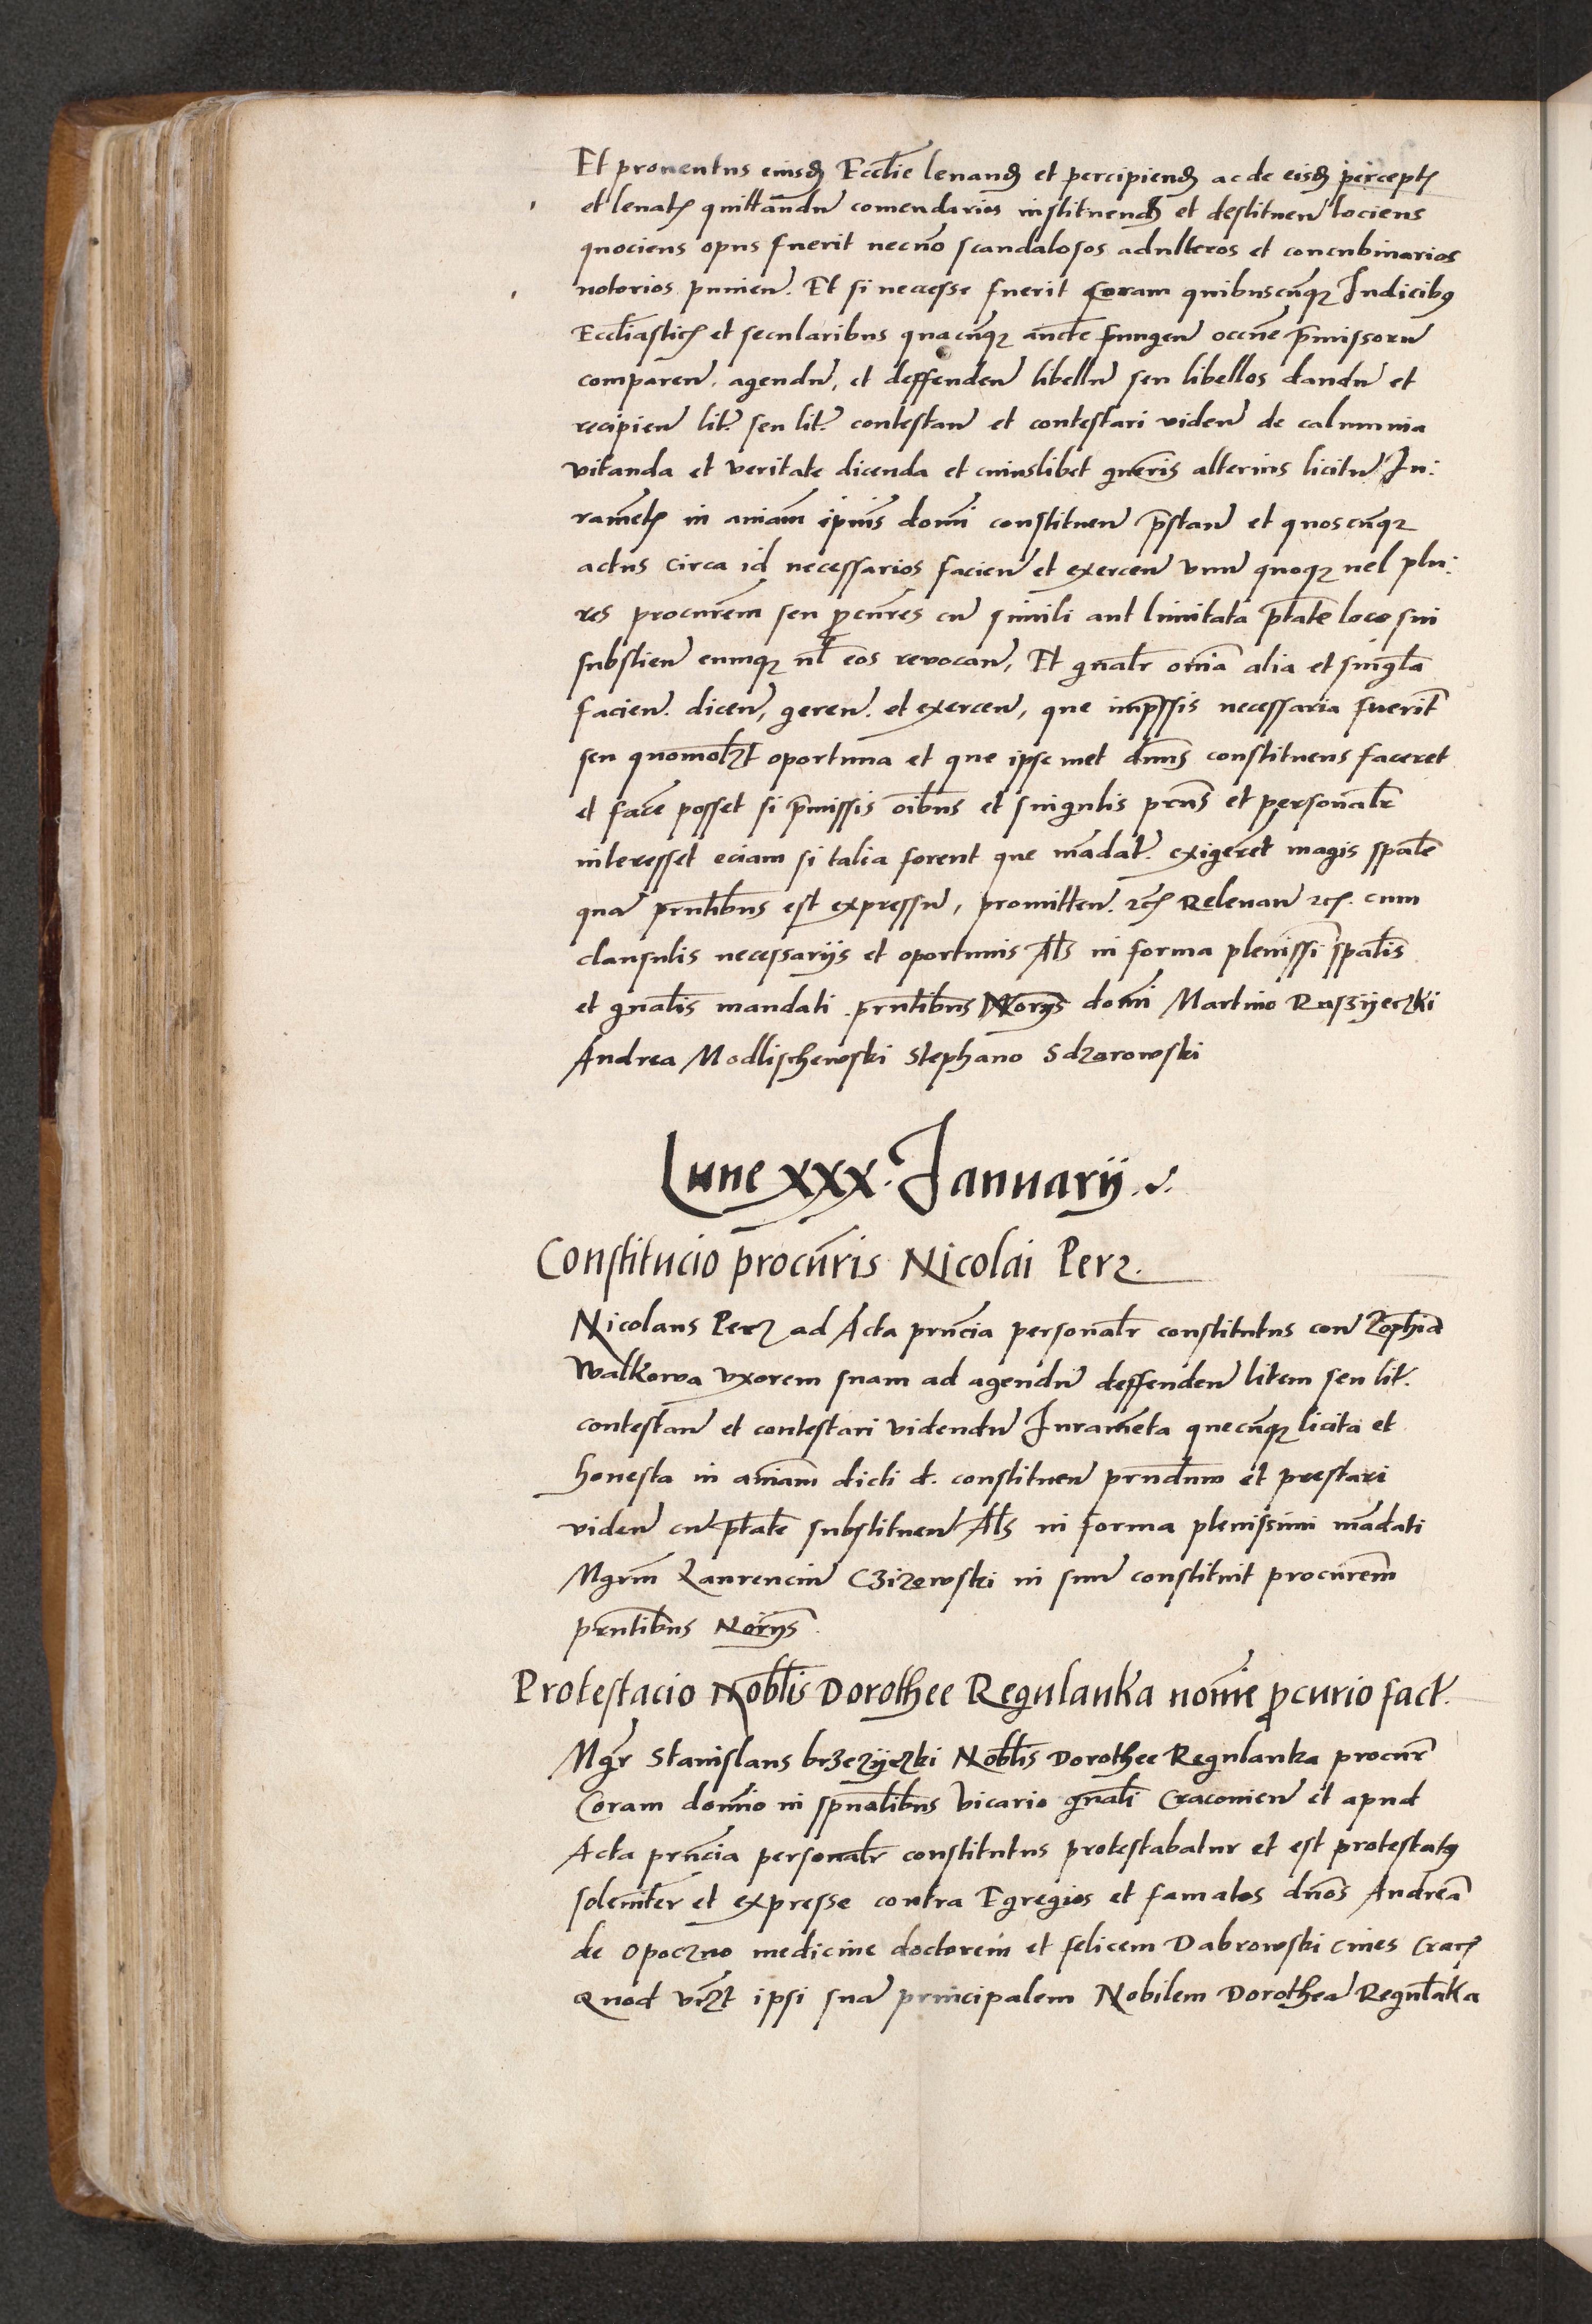 Et proventus eiusd Eccl̄ie levand et percipiend ac de eisd percept
et levat quittandū comendarios instituend et destituen̄ tociens
quociens opus fuerit necnō scandalosos adulteros et concubinarios
notorios punien̄. Et si necesse fuerit coram quibuscūq Iudicibus
Eccl̄iastic et secularibus quacūq auctē fungen̄ occnē p̄missorū
comparen̄. agendū, et deffenden̄ libellū seu libellos dandū et
recipien̄ lit. seu lit. contestan̄ et contestari viden̄ de calumnia
vitanda et veritate dicenda et cuiuslibet gn̄eris alterius licitū Iu:
ramēt in aīam ip̄ius domī constituen̄ p̄stan̄ et quoscūq
actus circa id necessarios facien̄ et exercen̄ unū quoq vel plu:
res procurēm seu p̄cūres cū simili aut limitata p̄tate loco sui
substien̄ eumq vl̄ eos revocan̄, Et gn̄alr̄ om̄ia alia et singl̄a
facien̄. dicen̄, geren̄. et exercen̄, que inp̄ssis necessaria fuerit̄
seu quomol̄zt oportuna et que ipse met dn̄us constituens faceret
et facē posset si p̄missis oībus et singulis prn̄s et personalr̄
interesset eciam si talia forent que mādat. exigerēt magis spālē
quā prn̄tibus est expressū, promitten̄. etc Relevan̄ etc. cum
clausulis necessarijs et oportunis Als̄ in forma plenissi spālis
et gn̄alis mandati prn̄tibus Norijs domī Martino Ruszyeczki
Andrea Modlischewski Stephano Sdzarowski
Lune xxx. Januarij
Constitucio procūris Nicolai Perz.
Nicolaus Perz ad Acta prn̄cia personalr̄ constitutus con̄ Zophiā
Walkowa uxorem suam ad agendū deffenden̄ litem seu lit.
contestan̄ et contestari videndū Iuramēta quecūq licita et
honesta in aīam dicti d. constituen̄ prn̄dum et prestari
viden̄ cū p̄tate substituen̄ Als̄ in forma plenissimi mādati
Mgrm̄ Laurenciū Czizewski in suū constituit procurēm
prn̄tibus Norijs.
Protestacio Nobl̄is Dorothee Regulanka nomīe p̄curio fact.
Mgr̄ Stanislaus brzezyczki Nobl̄is Dorothee Regulanka procur̄
Coram domīo in sp̄ualibus Vicario gn̄ali Cracovien̄ et apud
Acta prn̄cia personalr̄ constitutus protestabatur et est protestatus
solemīter et expresse contra Egregios et famatos dn̄os Andreā
de Opoczno medicine doctorem et felicem Dabrowski cives Crac
Quod lr̄zt ipsi suā principalem Nobilem Dorotheā Regul̄aka